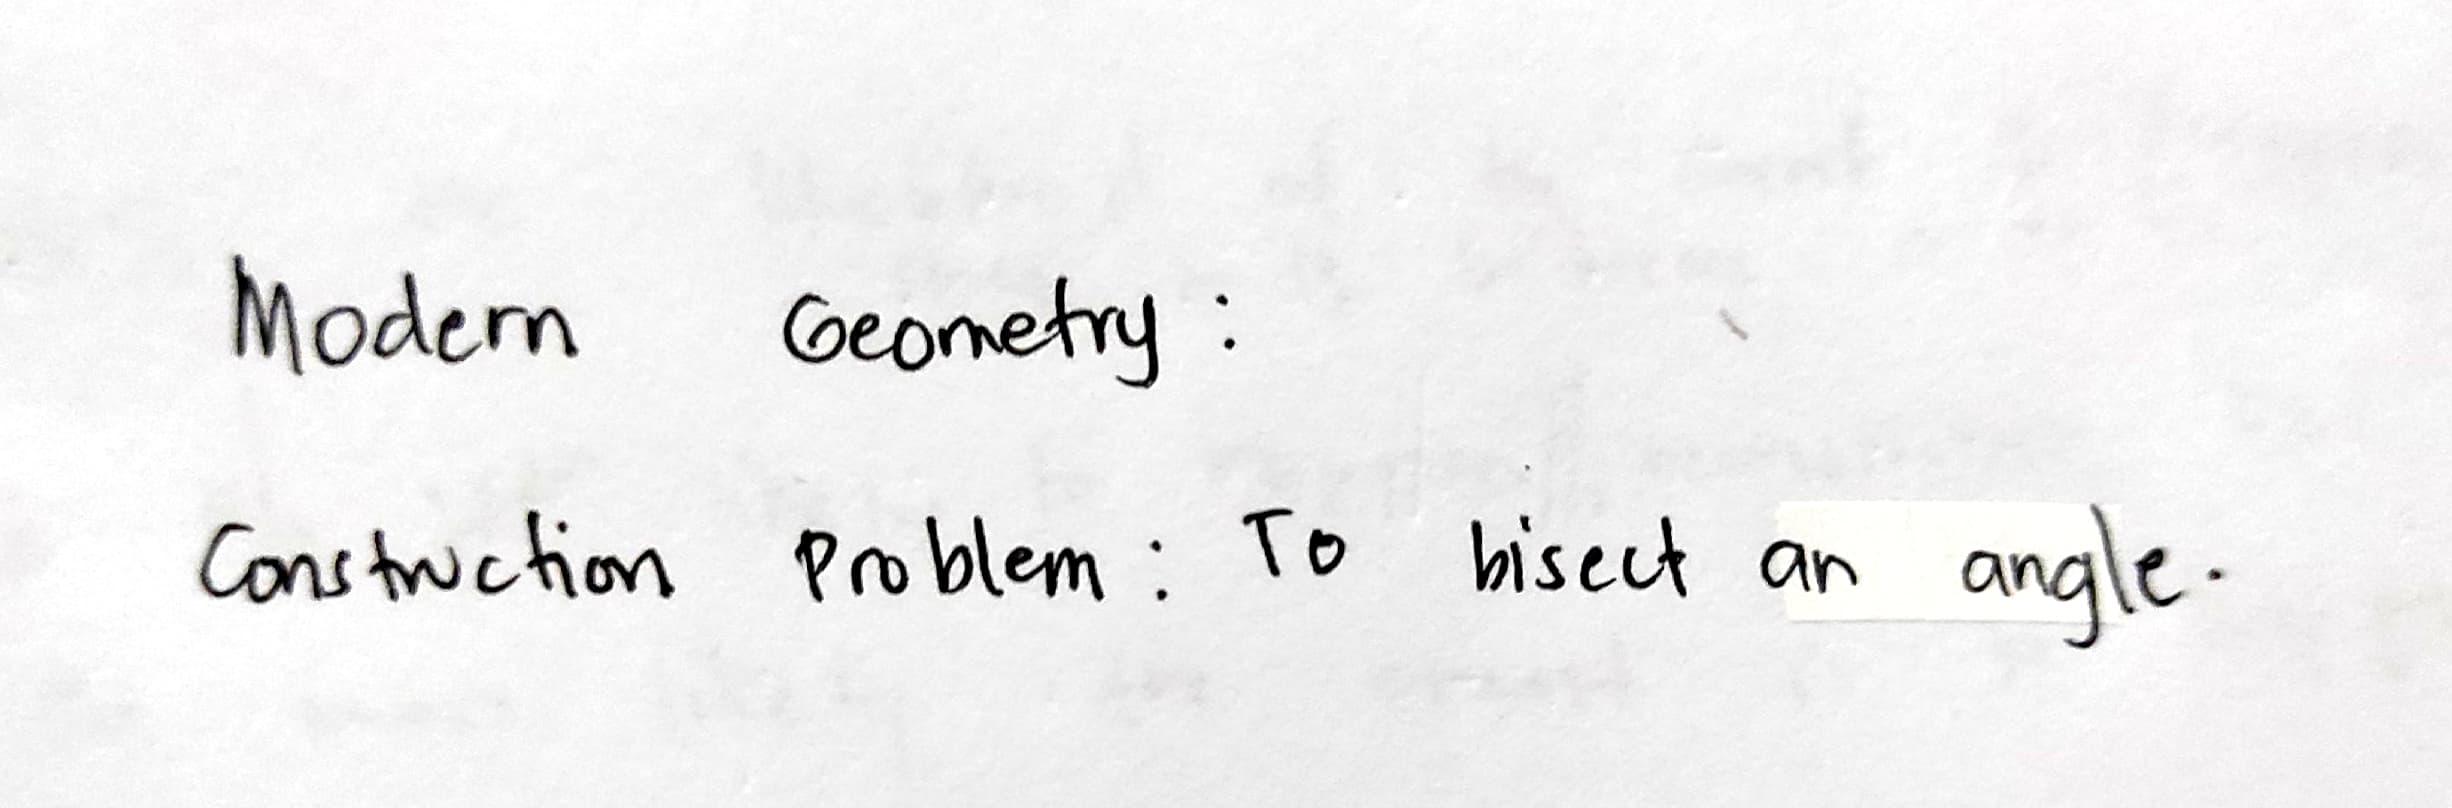 Modern Geometry:
Construction Problem: To bisect an angle.